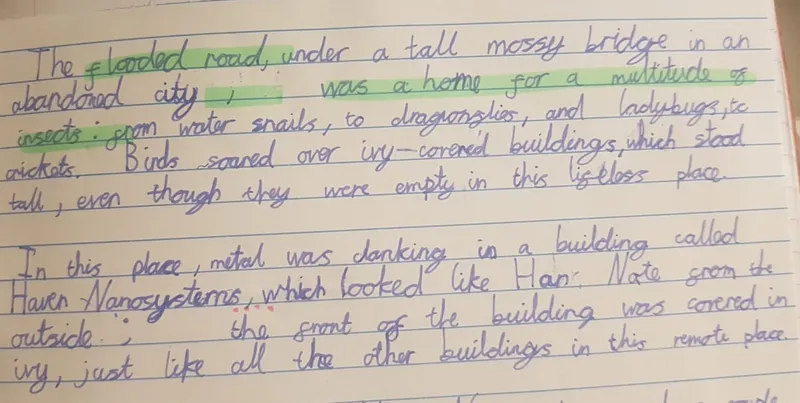 The flooded road, under a tall mossy bridge in an
abandoned city , was a home for a multitude of
insects: from water snails, to dragonflies, and ladybugs, to
crickets. Birds soared over ivy-covered buildings, which stood
tall, even though they were empty in this lifeless place.
In this place, metal was clanking in a building called
Haven Nanosystems, which looked like Han: Nate from the
outside. ; the front of the building was covered in
ivy, just like all the other buildings in this remote place.